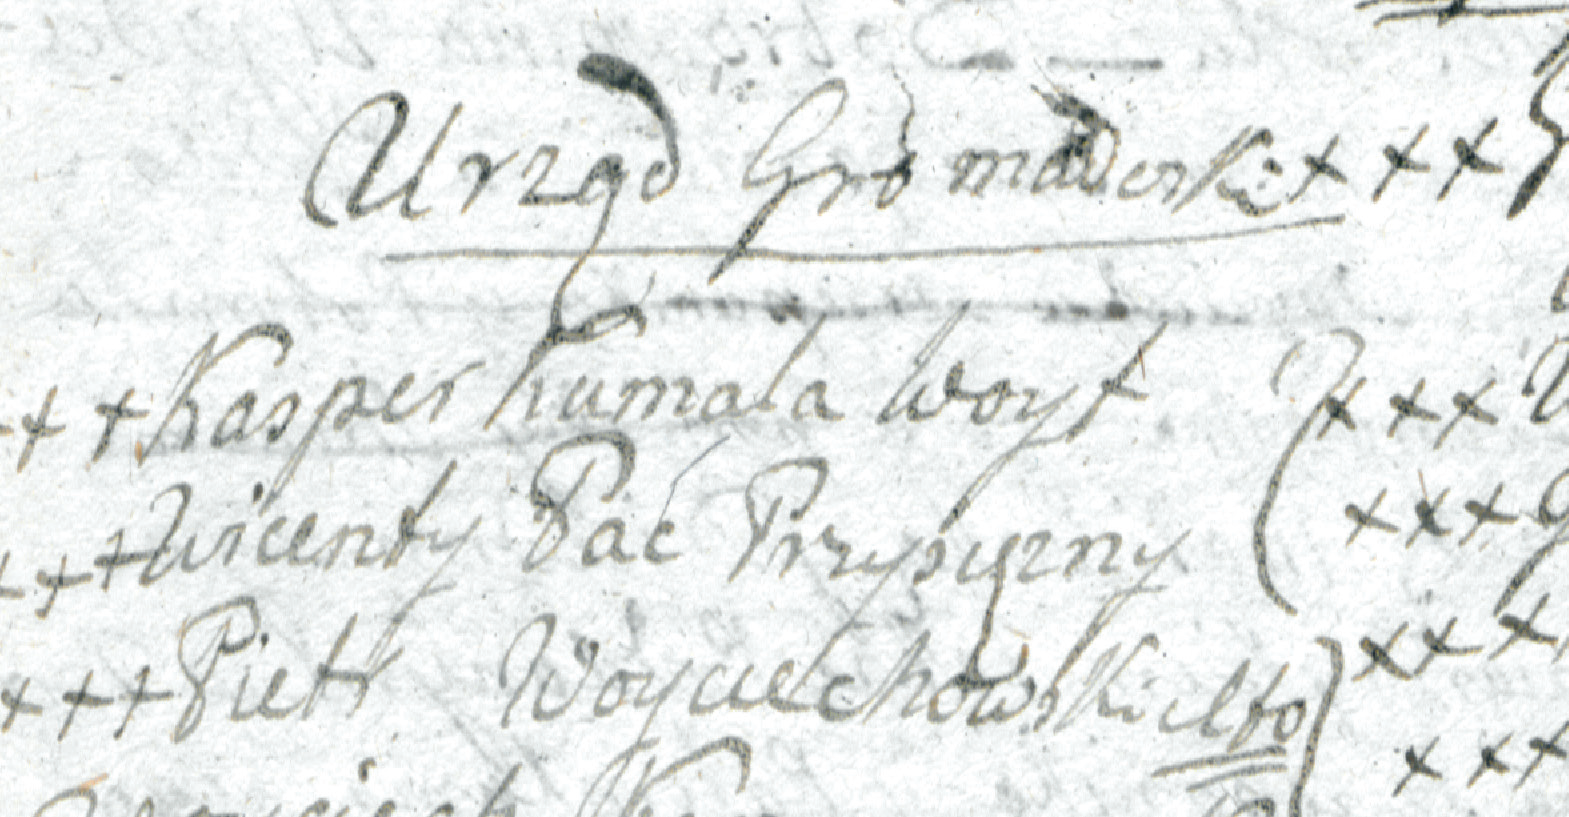 Urząd Gromadzki + + +
+ + + Kasper Kumala Woyt
+ + + Wicenty Pać Przysiężny
+ + + Pietr Woyciechowski
+ + +
+ + +
+ + +
+ + +